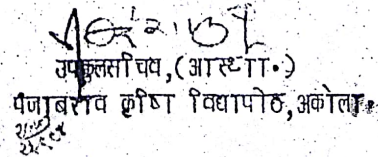 उपकुलसचिव,(आस्था.)
पंजाबराव कृषि विद्यापीठ,अकोला.